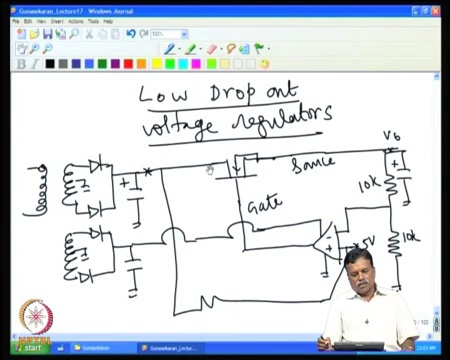 Gunasekaran_Lecture17 - Windows Journal
File Edit View Insert Actions Tools Help
Low Drop out
voltage regulators
Vo
Source
10k
Gate
5V
10k
start
Gunasekaran